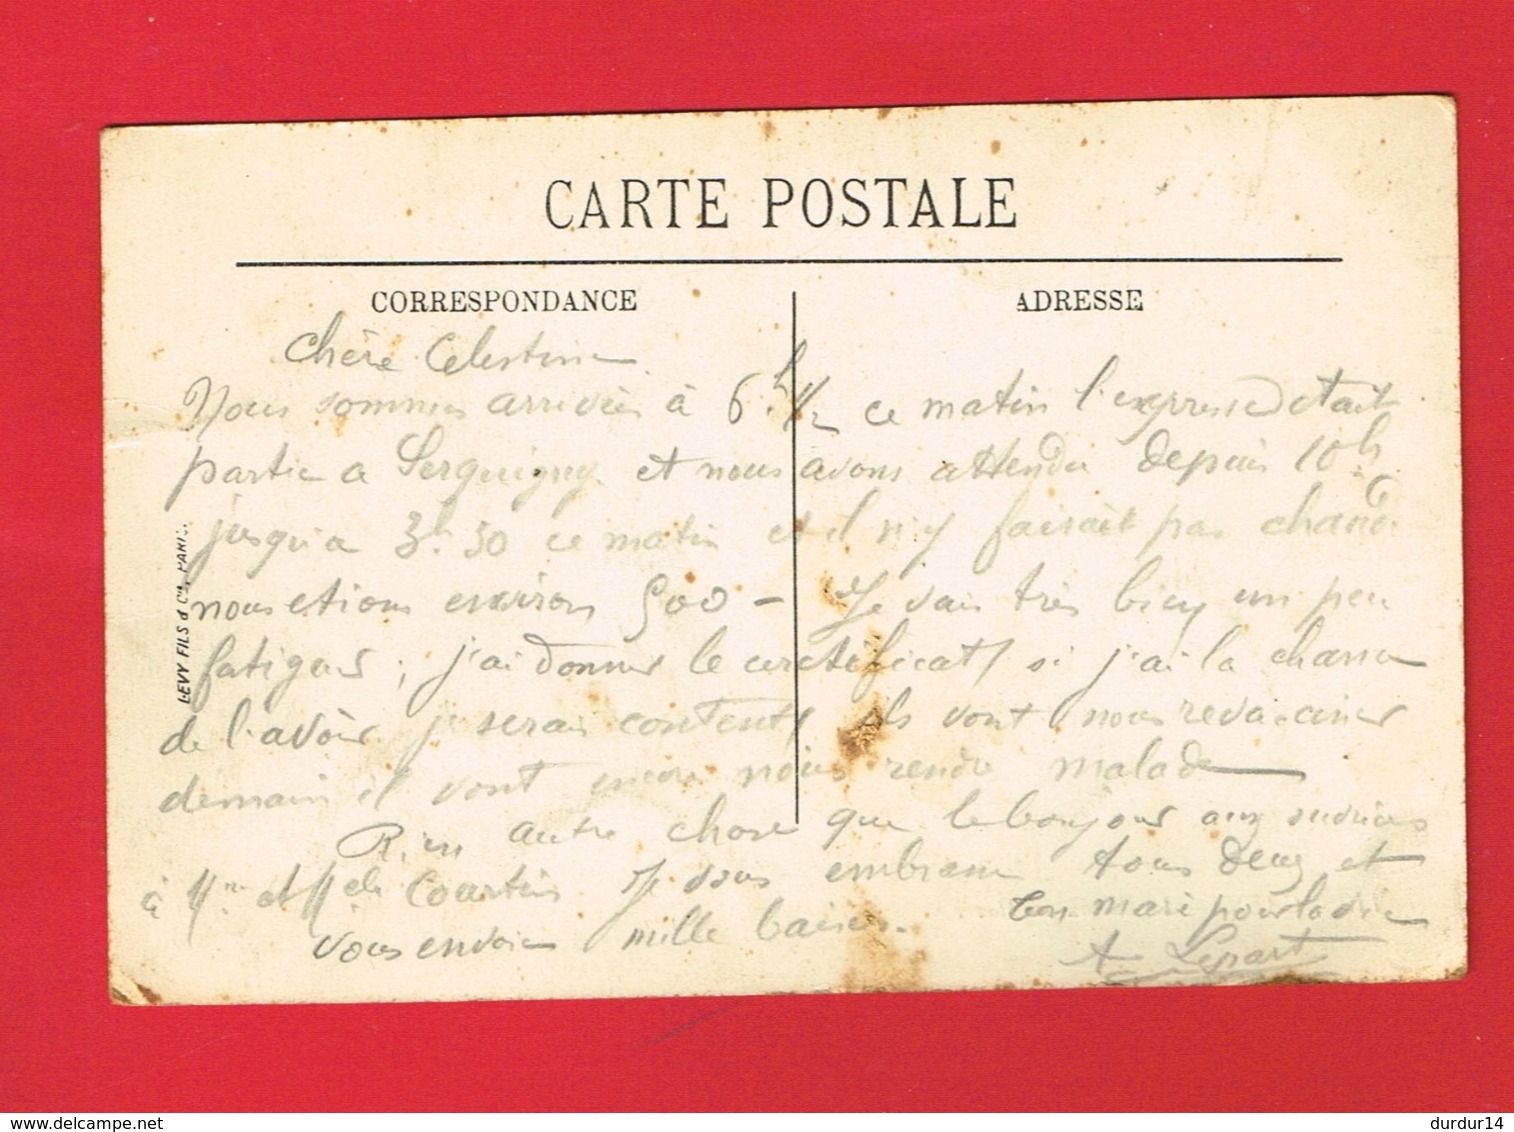 CARTE POSTALE
CORRESPONDANCE
ADRESSE
Chère Celestine
Nous sommes arrivées à 6h.1/2 ce matin l'expresse etait
partie a Serquigny et nous avons attendu depuis 10h.
jusqu'a 3h.30 ce matin et il n'y faisait pas chaud
nous etions environ 500 – Je vais très bien un peu
fatiguer ; j'ai donner le certificat si j'ai la chance
de l'avoir je serais content ils vont nous revacciner
demain il vont encore nous rendre malade
Rien autre chose que le bonjour aux
à Mme et Melle Courtin Je vous embrasse tous deux et
vous envoie mille baisers. Ton mari pour la vie
A Lepart
LEVY FILS & Cie, PARIS.
delcampe.net
durdur14